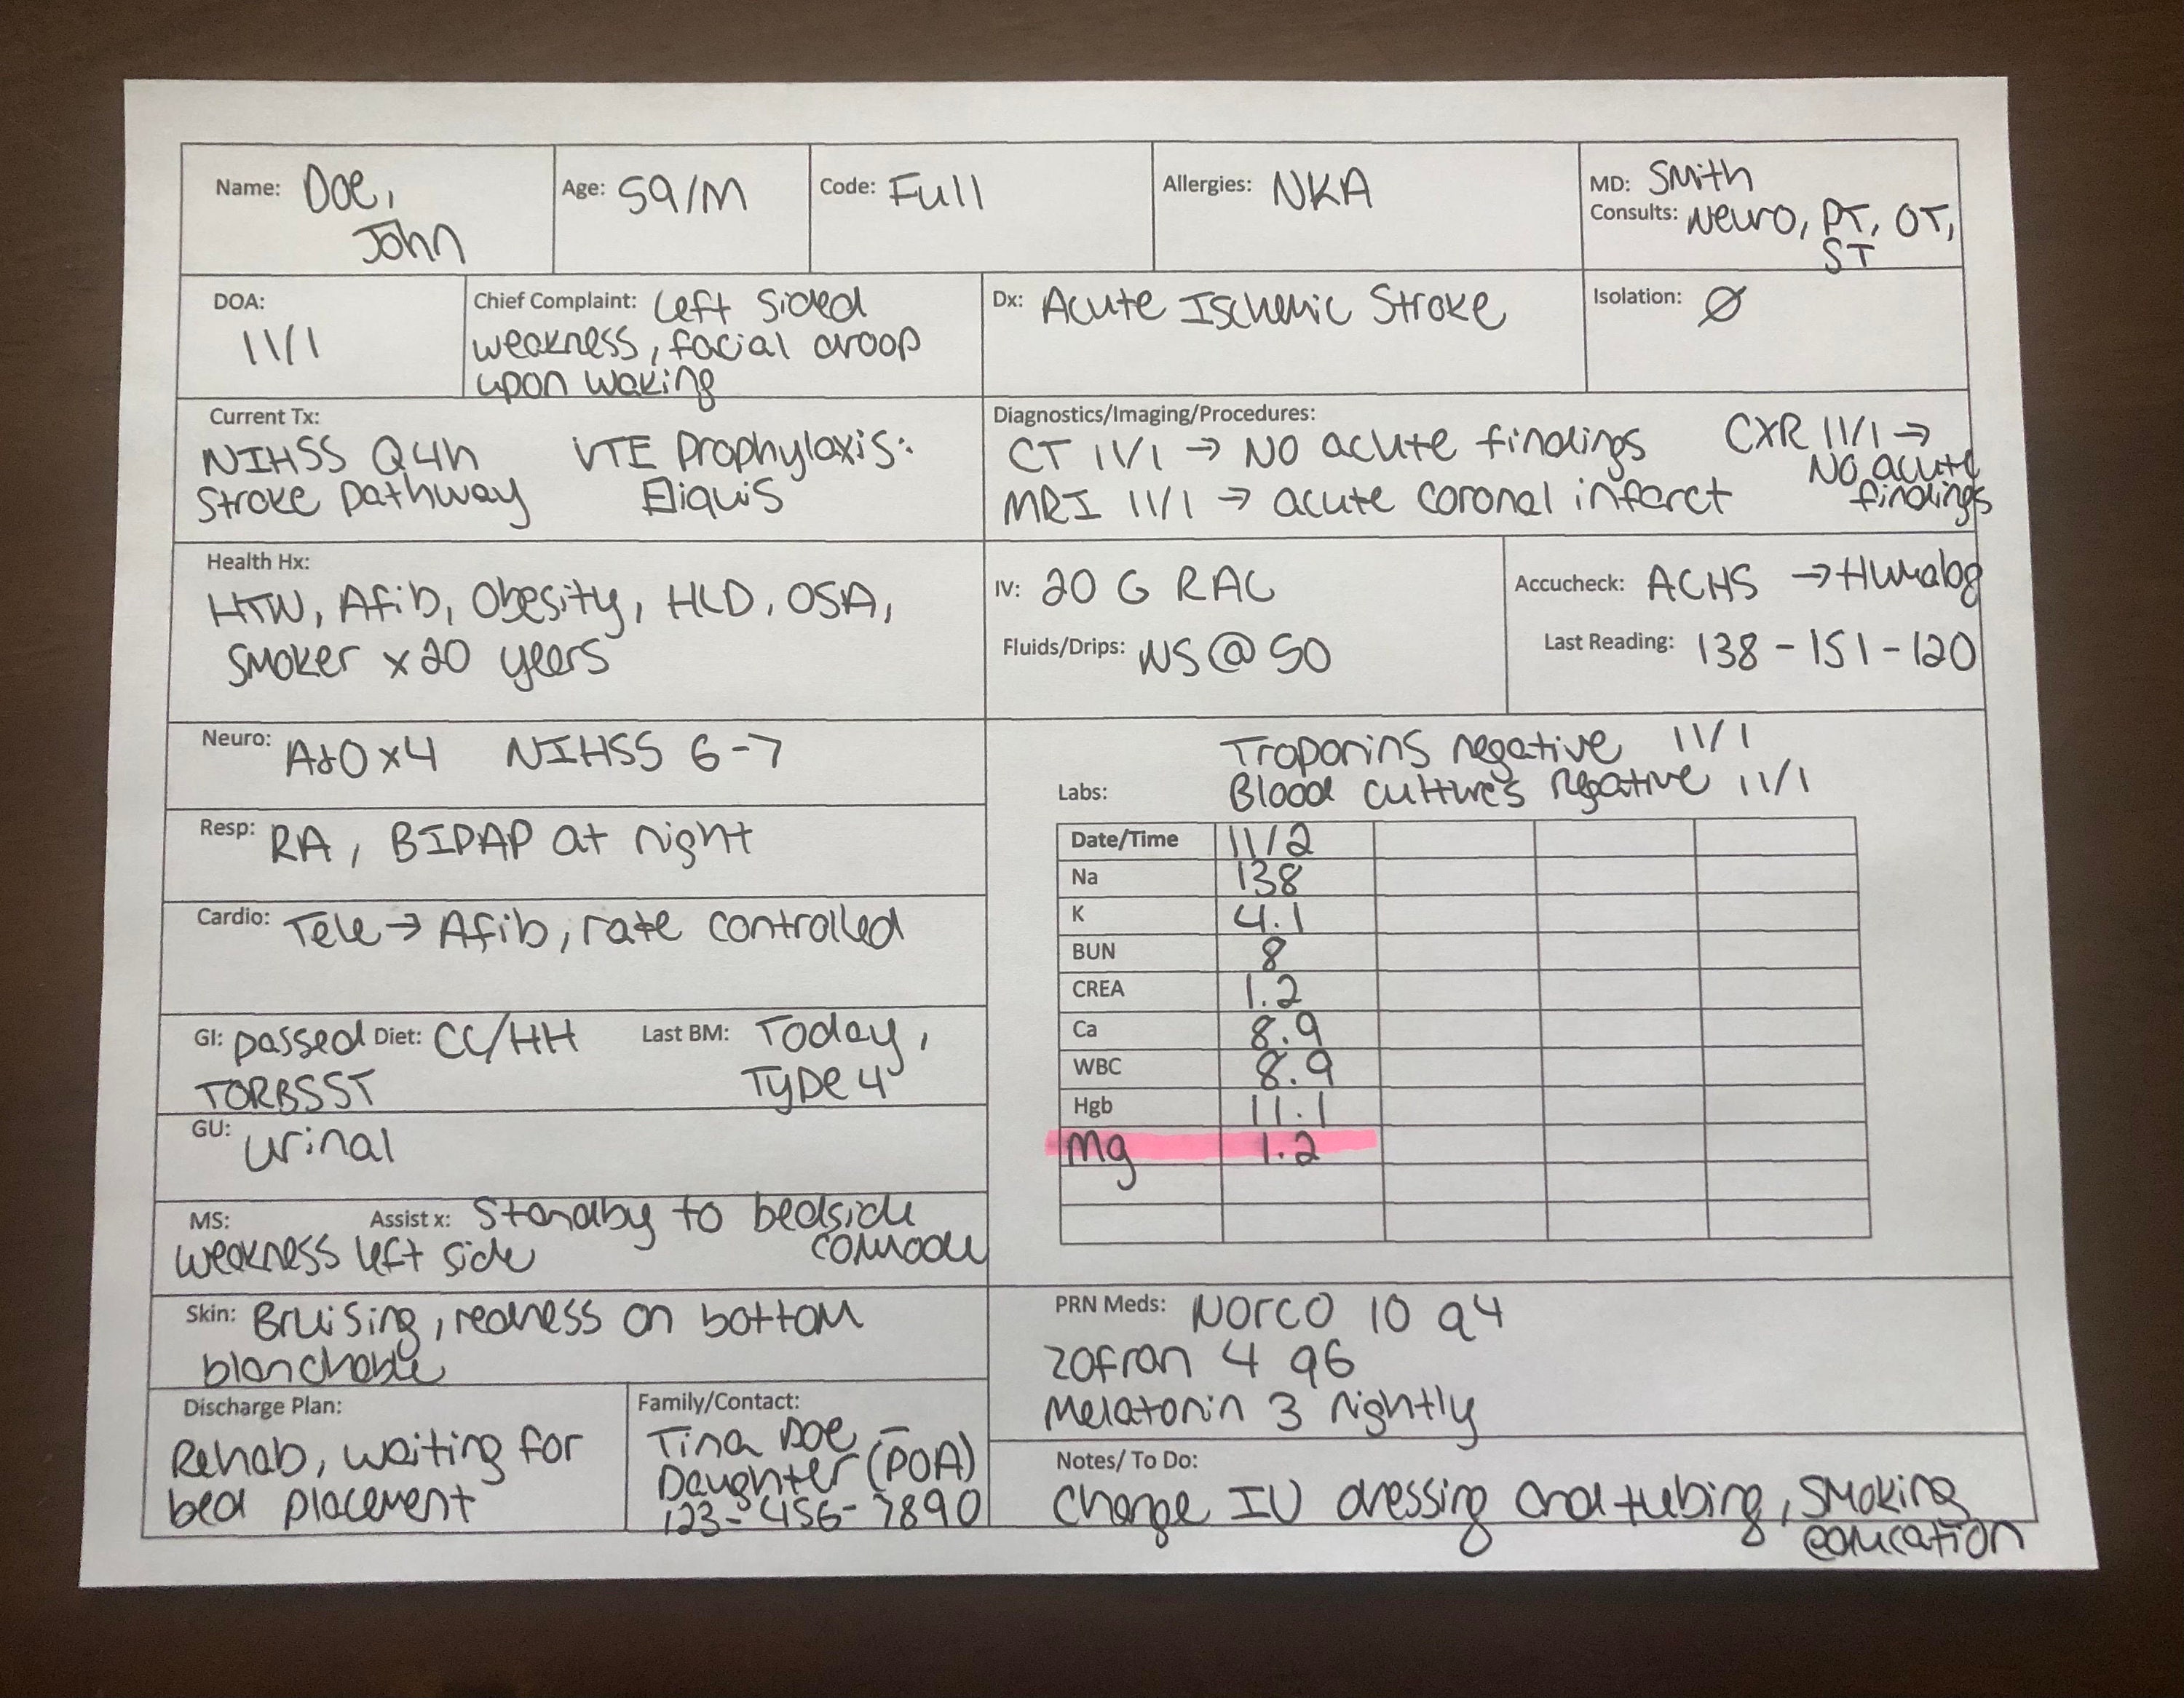 Name: Doe, John
Age: 59/M
Code: Full
Allergies: NKA
MD: Smith
Consults: Neuro, PT, OT,
ST
DOA:
11/1
Chief Complaint: Left sided
weakness, facial droop
upon waking
Dx: Acute Ischemic Stroke
Isolation: Ø
Current Tx:
NIHSS Q4h
Stroke pathway
VTE Prophylaxis:
Eliquis
Diagnostics/Imaging/Procedures:
CT 11/1 → No acute findings
MRI 11/1 → acute coronal infarct
CXR 11/1 →
No acute
findings
Health Hx:
HTN, Afib, Obesity, HLD, OSA,
Smoker x20 years
IV: 20 G RAC
Fluids/Drips: NS @ 50
Accucheck: ACHS → Humalog
Last Reading: 138 - 151 - 120
Neuro: A&O x4 NIHSS 6-7
Resp: RA, BIPAP at night
Cardio: Tele → Afib, rate controlled
GI: passed
TORBSST
Diet: CC/HH
Last BM: Today,
Type 4
GU: urinal
MS:
weakness left side
Assist x: Standby to bedside
commode
Skin: Bruising, redness on bottom
blanchable
Discharge Plan:
Rehab, waiting for
bed placement
Family/Contact:
Tina Doe –
Daughter (POA)
123-456-7890
Troponins negative 11/1
Labs: Blood cultures negative 11/1
Date/Time 11/2
Na 138
K 4.1
BUN 8
CREA 1.2
Ca 8.9
WBC 8.9
Hgb 11.1
Mg 1.2
PRN Meds: Norco 10 q4
Zofran 4 q6
Melatonin 3 nightly
Notes/ To Do:
Change IV dressing and tubing, smoking
education